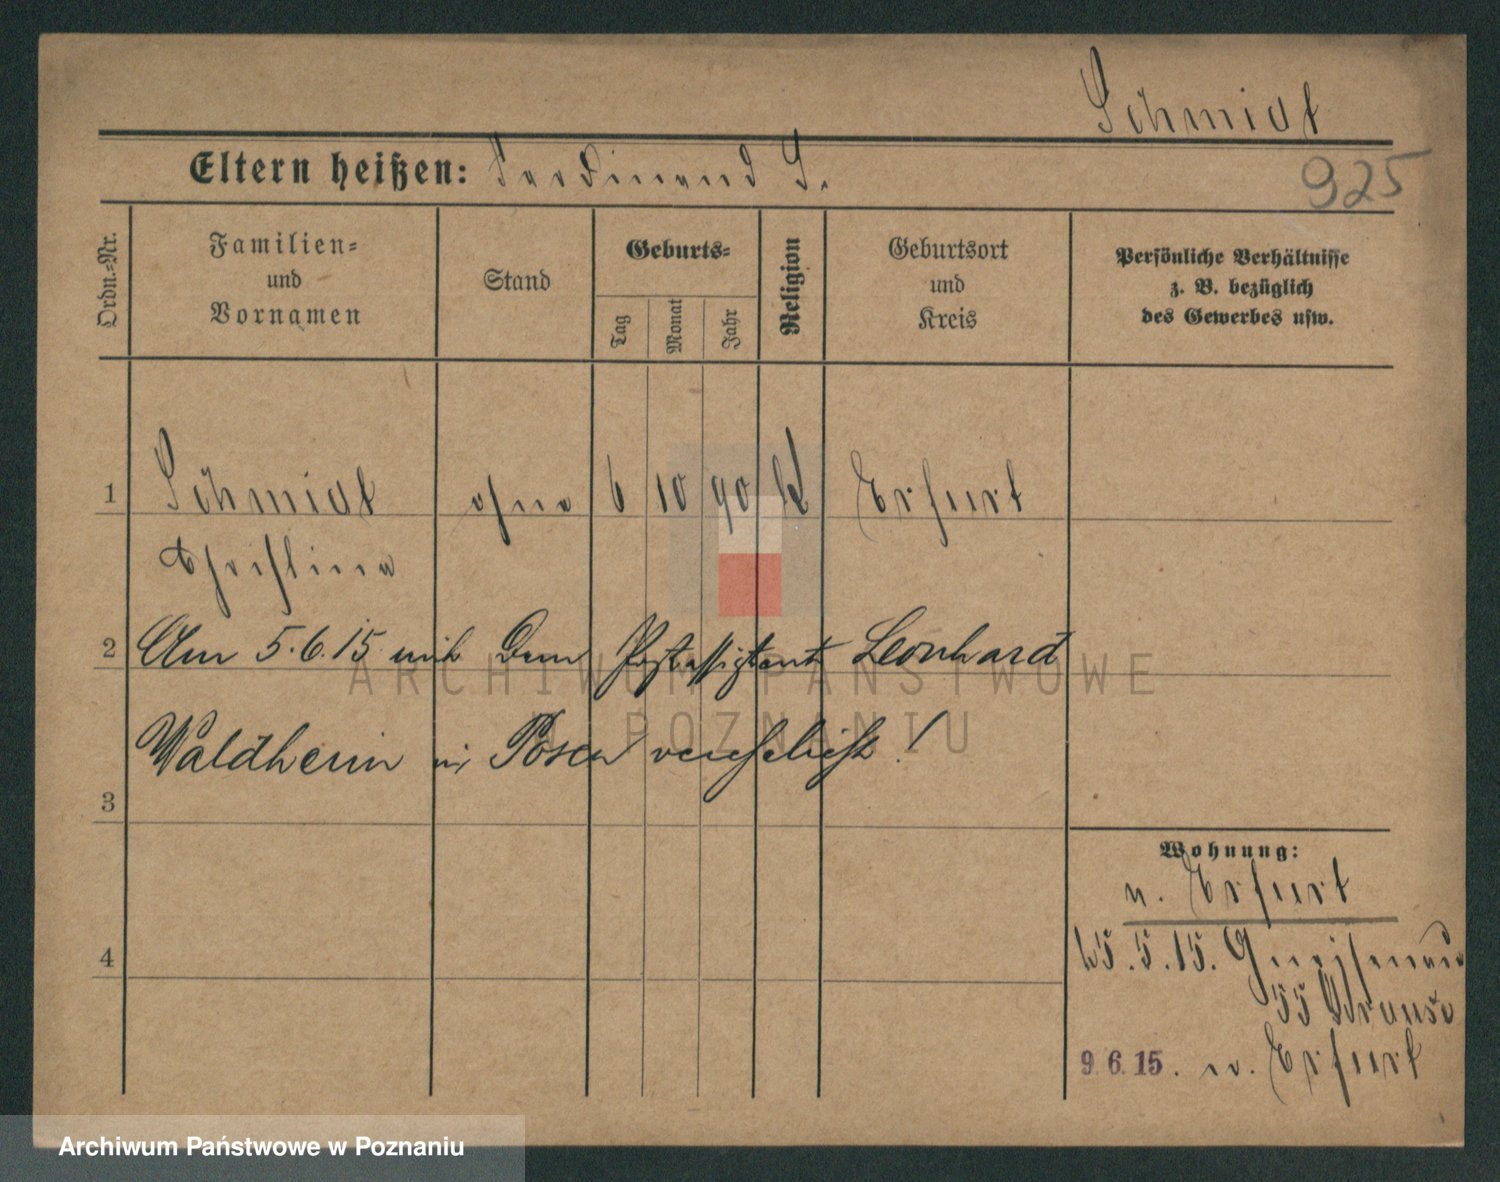 Schmidt
Eltern heißen: Ferdinand S.
925
Ordn.-Nr.
Familien-
und
Vornamen
Stand
Geburts-
Tag
Monat
Jahr
Religion
Geburtsort
und
Kreis
Persönliche Verhältnisse
z. B. bezüglich
des Gewerbes usw.
1 Schmidt ohne 6 10 90 k Erfurt
Christine
2 Am 5.6.15 mit dem Postassistent Leonhard
Waldheim in Posen verehelicht!
3
4
Wohnung:
n. Erfurt
15.5.15. Gneisenau
55 Krause
9.6.15. n. Erfurt
ARCHIWUM PAŃSTWOWE
W POZNANIU
Archiwum Państwowe w Poznaniu